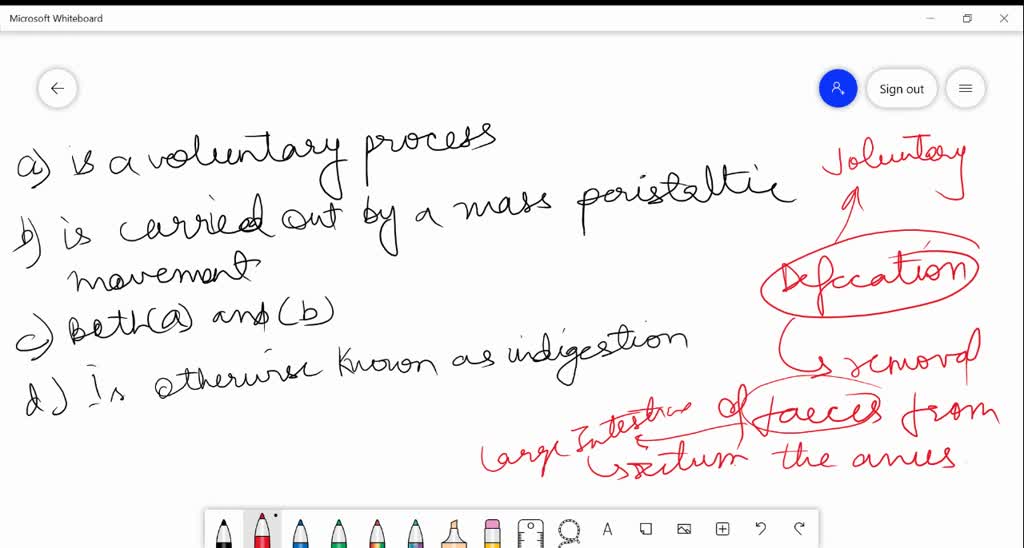 Microsoft Whiteboard
Sign out
a) is a voluntary process
b) is carried out by a mass peristaltic
movement
c) Both (a) and (b)
d) Is otherwise known as indigestion
Voluntary
Defecation
removal
of faeces from
the anus
Large Intestine
rectum
A